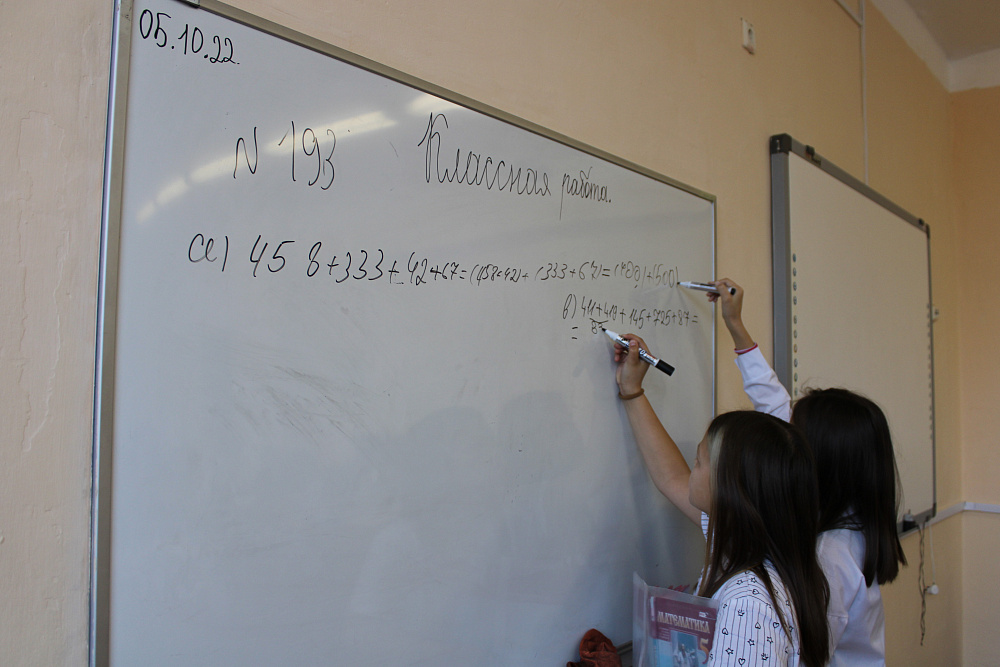 05.10.22.
N 193 Классная работа.
а) 458+333+42+67=(458+42)+(333+67)=(500)+(500)
в) 411+419+145+725+87=
=
МАТЕМАТИКА 5